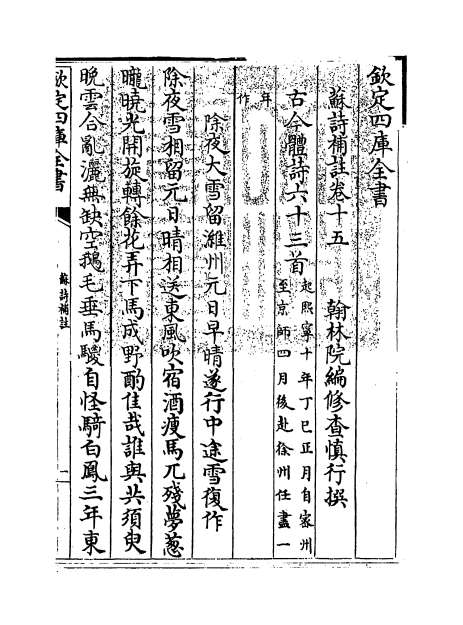 欽定四庫全書
蘇詩補註卷十五
翰林院編修查慎行撰
古今體詩六十三首
起熙寧十年丁巳正月自密州
至京師四月後赴徐州任盡一
年
作
除夜大雪留濰州元日早晴遂行中途雪復作
除夜雪相留元日晴相送東風吹宿酒瘦馬兀殘夢葱
曨曉光開旋轉餘花弄下馬成野酌佳哉誰與共須臾
晚雲合亂灑無缺空鵝毛垂馬騣自怪騎白鳳三年東
欽定四庫全書
蘇詩補註